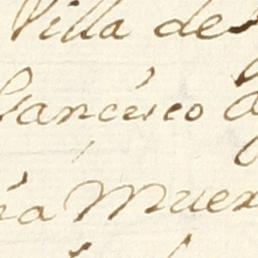 Villa de
Francisco
Muer